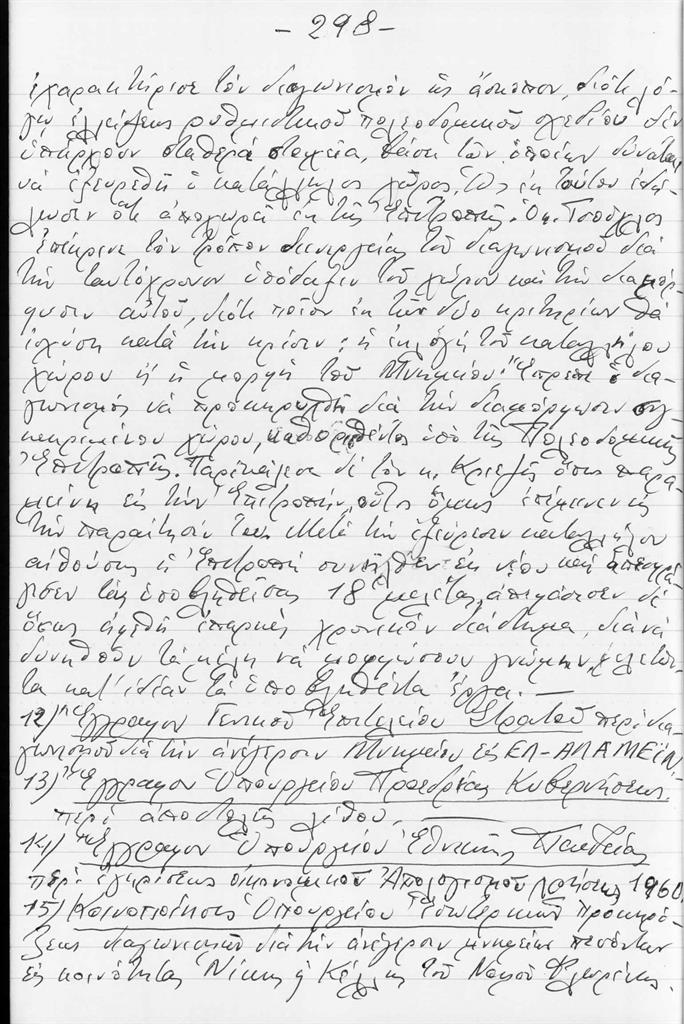 - 298 -
ἐχαρακτήρισε τὸν διαγωνισμὸν ὡς ἄσκοπον, διότι λό-
γῳ ἐλλείψεως ρυθμιστικοῦ πολεοδομικοῦ σχεδίου δὲν
ὑπάρχουν σταθερὰ στοιχεῖα, βάσει τῶν ὁποίων δύναται
νὰ ἐξευρεθῇ ὁ κατάλληλος χῶρος. Ὡς ἐκ τούτου ἐδή-
λωσεν ὅτι ἀποχωρεῖ ἐκ τῆς Ἐπιτροπῆς. Ὁ κ.
ἐπέκρινε τὸν τρόπον διενεργείας τοῦ διαγωνισμοῦ διὰ
τὴν ταυτόχρονον ὑπόδειξιν τοῦ χώρου καὶ τὴν διαμόρ-
φωσιν αὐτοῦ, διότι ποῖον ἐκ τῶν δύο κριτηρίων θὰ
ἰσχύσῃ κατὰ τὴν κρίσιν; ἡ ἐκλογὴ τοῦ καταλλήλου
χώρου ἢ ἡ μορφὴ τοῦ Μνημείου; Ἔπρεπε ὁ δια-
γωνισμὸς νὰ προκηρυχθῇ διὰ τὴν διαμόρφωσιν συγ-
κεκριμένου χώρου, καθορισθέντος ὑπὸ τῆς Πολεοδομικῆς
Ἐπιτροπῆς. Παρεκάλεσα δὲ τὸν κ. Κριεζῆν ὅπως παρα-
μείνῃ εἰς τὴν Ἐπιτροπήν, οὗτος ὅμως ἐπέμεινεν εἰς
τὴν παραίτησίν του. Μετὰ τὴν ἐξεύρεσιν καταλλήλου
αἰθούσης ἡ Ἐπιτροπὴ συνῆλθεν ἐκ νέου καὶ
τὰς ὑποβληθείσας 18 μελέτας, ἀπεφάσισεν δὲ
ὅπως ἀφεθῇ ἐπαρκὲς χρονικὸν διάστημα, διὰ νὰ
δυνηθοῦν τὰ μέλη νὰ μορφώσουν γνώμην, μελετῶν-
τα κατ' ἰδίαν τὰ ὑποβληθέντα ἔργα. —
12) Ἔγγραφον Γενικοῦ Ἐπιτελείου Στρατοῦ περὶ δια-
γωνισμοῦ διὰ τὴν ἀνέγερσιν Μνημείου εἰς ΕΛ-ΑΛΑΜΕΪΝ.
13) Ἔγγραφον Ὑπουργείου Προεδρίας Κυβερνήσεως.
περὶ ἀποστολῆς λίθου. —
14) Ἔγγραφον Ὑπουργείου Ἐθνικῆς Παιδείας
περὶ ἐγκρίσεως οἰκονομικοῦ Ἀπολογισμοῦ χρήσεως 1960.
15) Κοινοποίησις Ὑπουργείου Ἐσωτερικῶν προκηρύ-
ξεως διαγωνισμοῦ διὰ τὴν ἀνέγερσιν μνημείου πεσόντων
εἰς κοινότητας Νίκης ἢ Κέλλης τοῦ Νομοῦ Φλωρίνης.